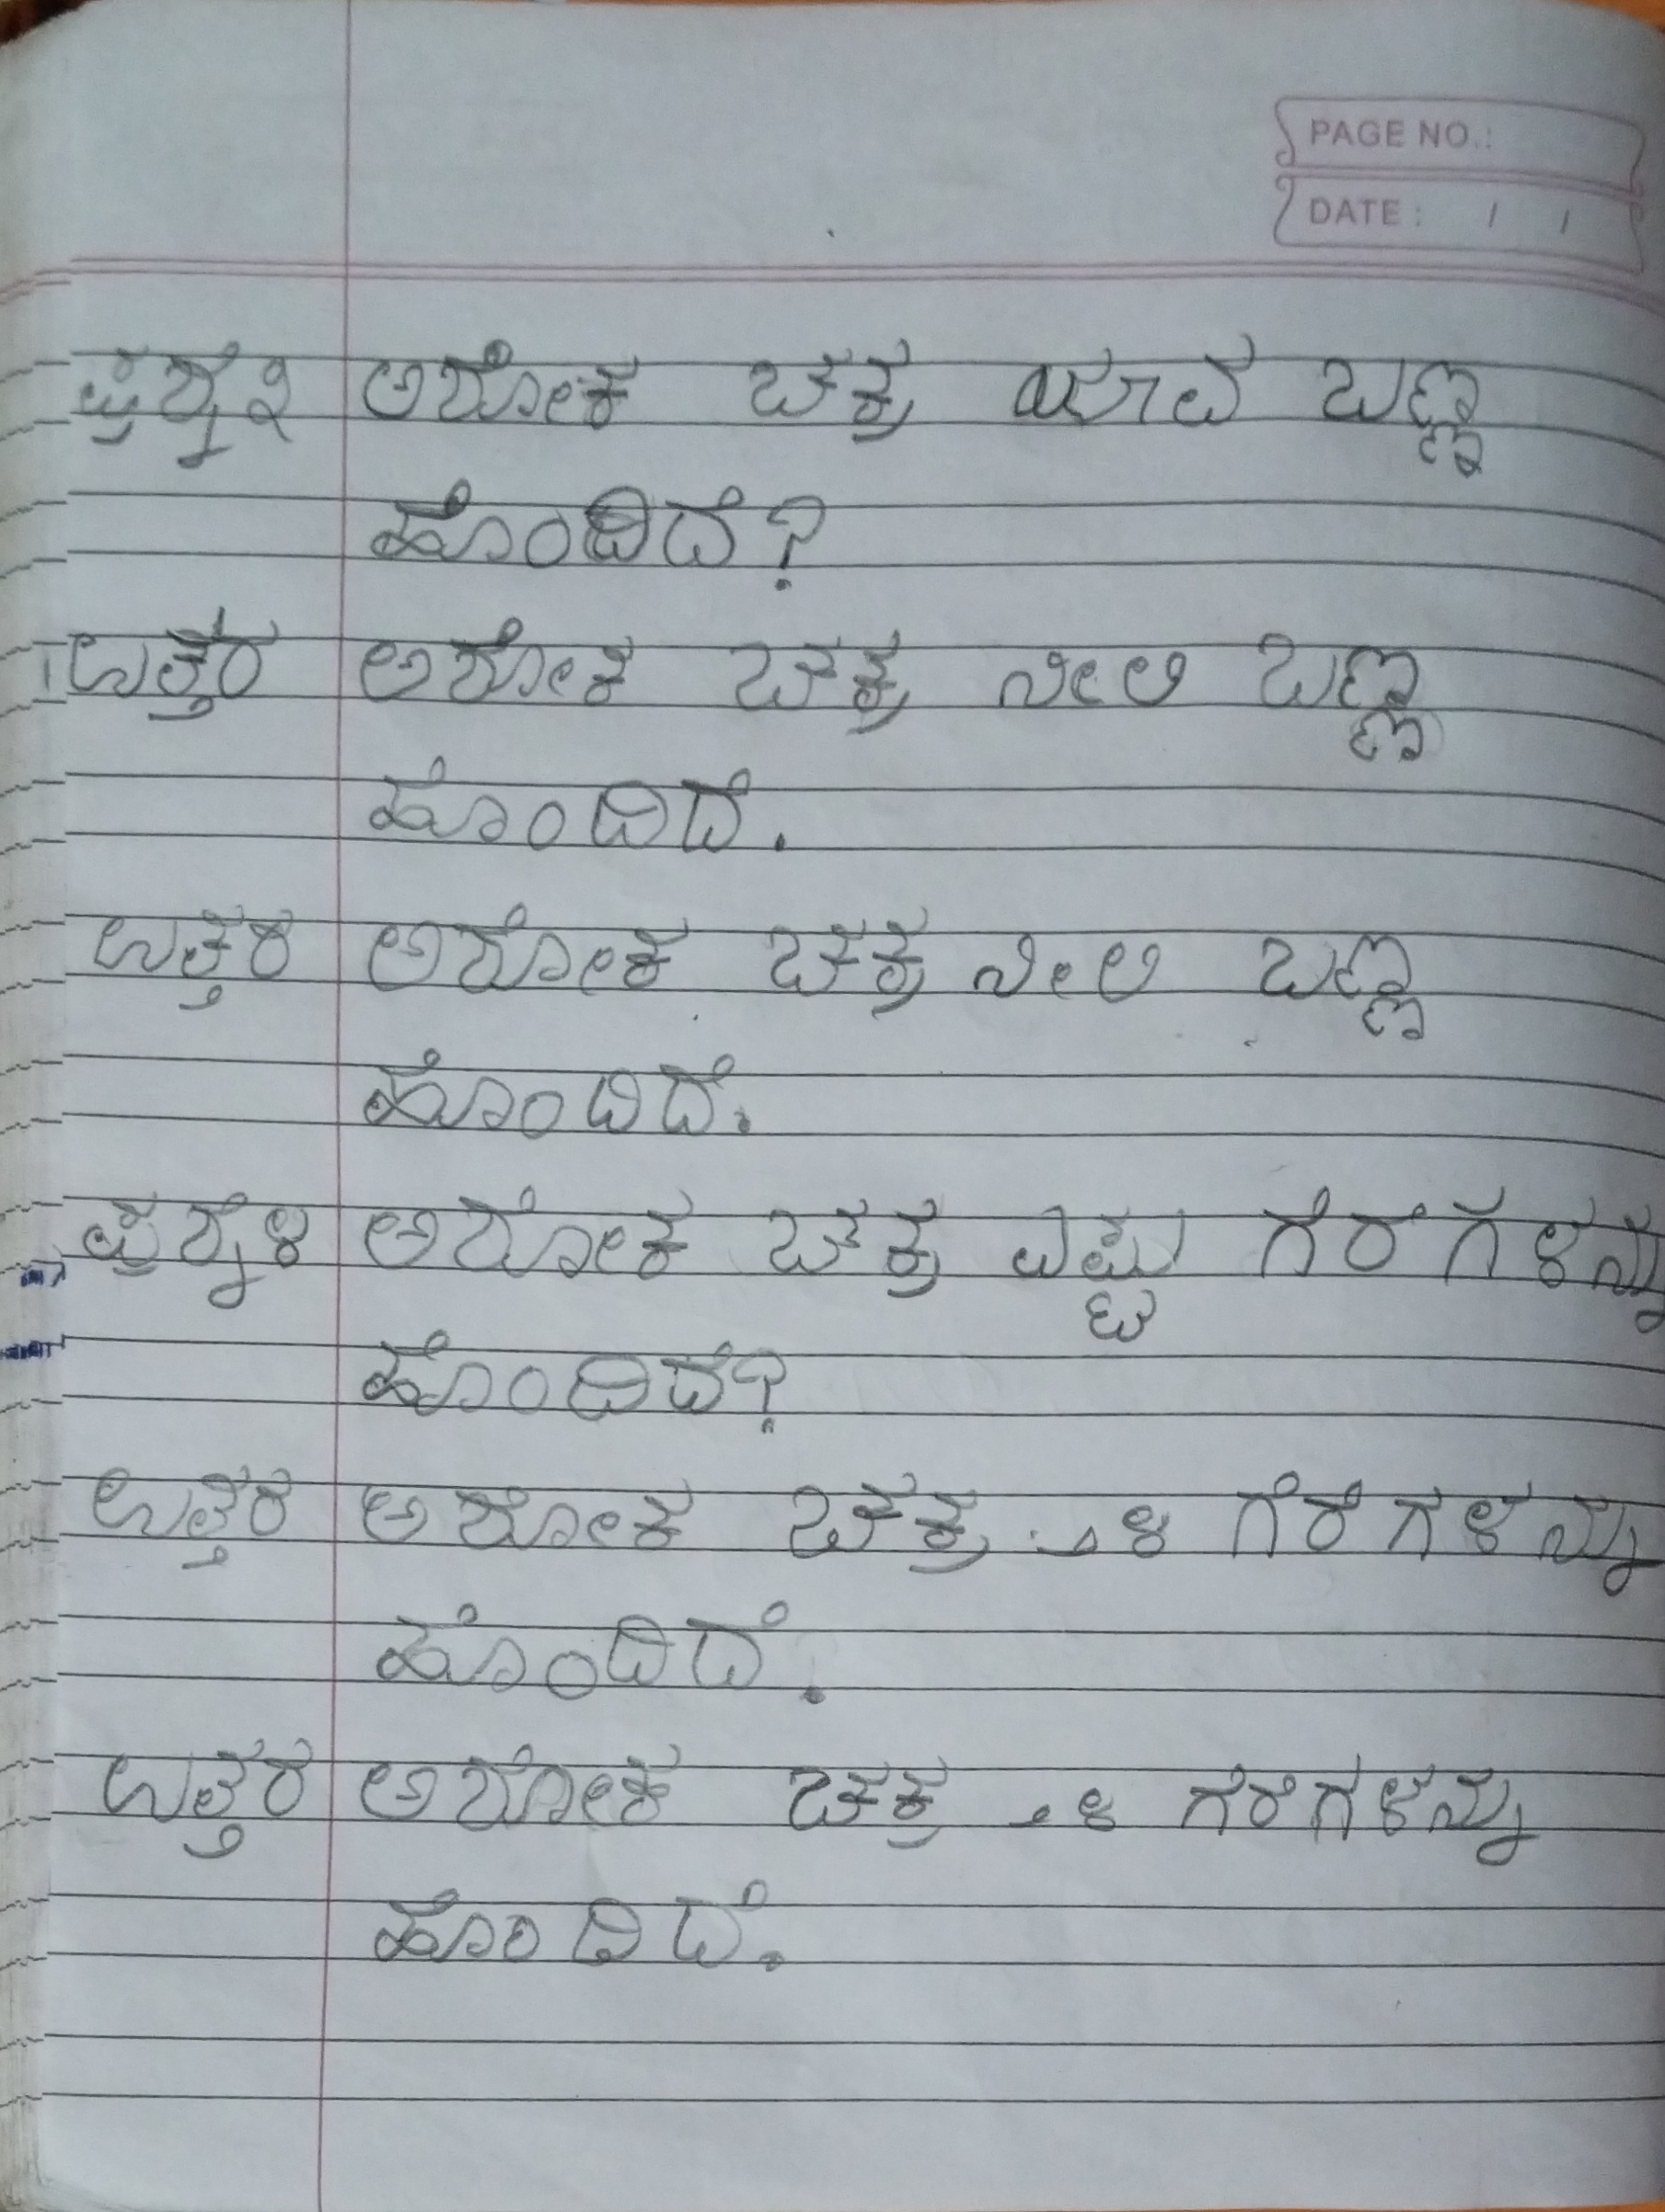 PAGE NO.:
DATE: / /
ಪ್ರಶ್ನೆ೩ ಅಶೋಕ ಚಕ್ರ ಯಾವ ಬಣ್ಣ
ಹೊಂದಿದೆ?
ಉತ್ತರ ಅಶೋಕ ಚಕ್ರ ನೀಲಿ ಬಣ್ಣ
ಹೊಂದಿದೆ.
ಉತ್ತರ ಅಶೋಕ ಚಕ್ರ ನೀಲಿ ಬಣ್ಣ
ಹೊಂದಿದೆ.
ಪ್ರಶ್ನೆ೪ ಅಶೋಕ ಚಕ್ರ ಎಷ್ಟು ಗೆರೆಗಳನ್ನು
ಹೊಂದಿದೆ?
ಉತ್ತರ ಅಶೋಕ ಚಕ್ರ ೨೪ ಗೆರೆಗಳನ್ನು
ಹೊಂದಿದೆ.
ಉತ್ತರ ಅಶೋಕ ಚಕ್ರ ೨೪ ಗೆರೆಗಳನ್ನು
ಹೊಂದಿದೆ.